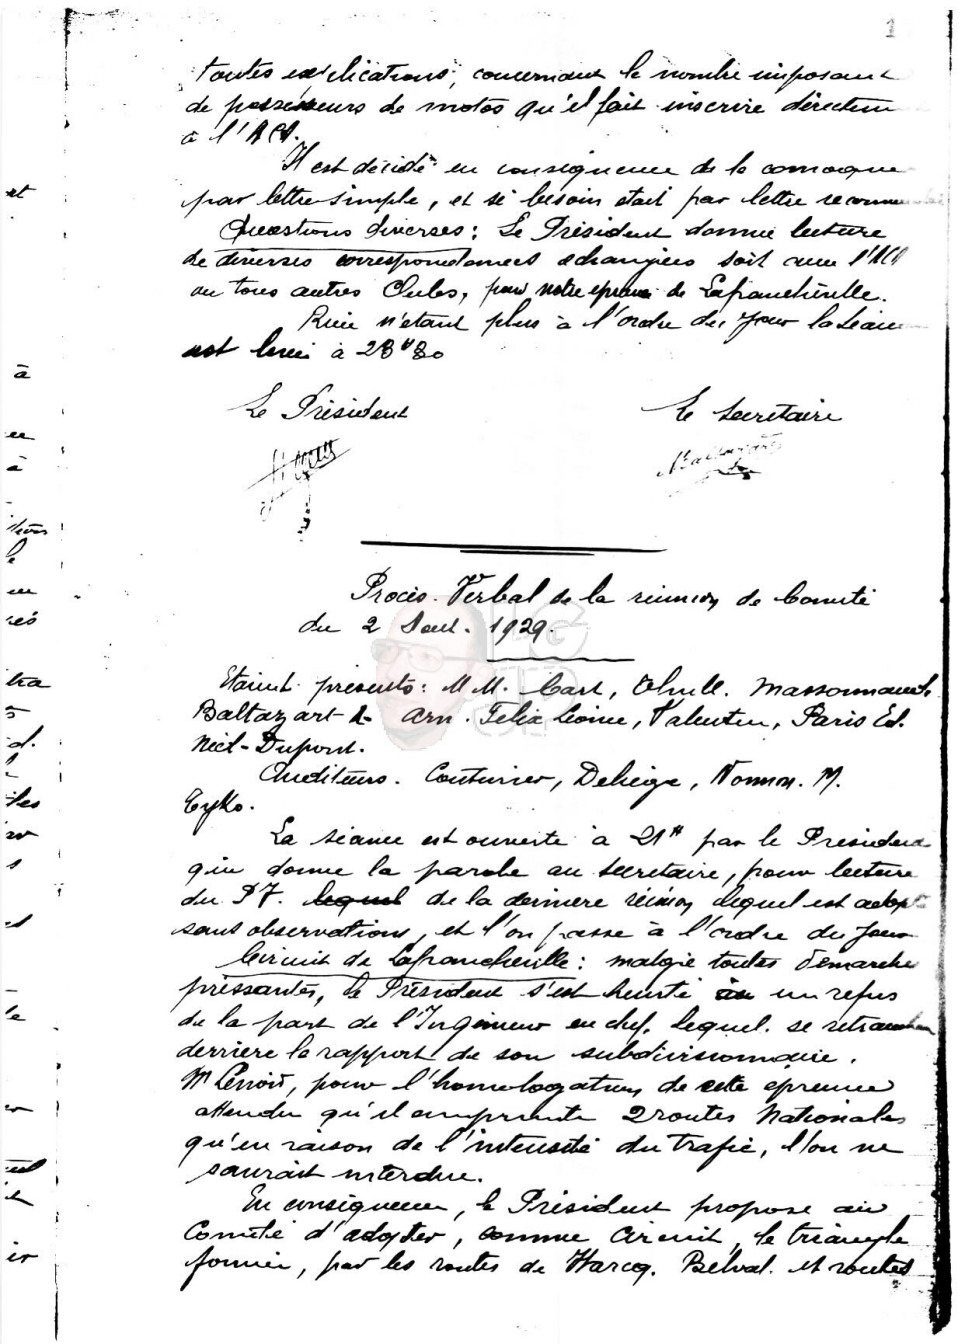 1
toutes explications, concernant le nombre imposant
de possesseurs de motos qu'il fait inscrire directem
à l'ACA.
Il est décidé en conséquence de le convoquer
par lettre simple, et si besoin était par lettre recommandée
Questions diverses : Le Président donne lecture
de diverses correspondances échangées soit avec l'ACA
ou tous autres Clubs, pour notre épreuve de Lafrancheville.
Rien n'étant plus à l'ordre du jour la séance
est levée à 23H30
Le Président
Le Secrétaire
Baltazart
Procès-Verbal de la réunion de Comité
du 2 Aout. 1929.
Etaient présents : M M. Cart, Massonnaud.
Baltazart A- Arn. Felix Léonie, Valentin, Paris Ed.
Dupont.
Auditeurs. Couturier, Deliège, M.
La séance est ouverte à 21H par le Président
qui donne la parole au secrétaire, pour lecture
du P.V. lequel de la dernière réunion lequel est adopté
sans observations, et l'on passe à l'ordre du jour
Circuit de Lafrancheville : malgré toutes démarches
pressantes, le Président s'est heurté à un refus
de la part de l'Ingénieur en chef, lequel se retranche
derrière le rapport de son subdivisionnaire.
Mr Lenoir, pour l'homologation de cette épreuve
attendu qu'il emprunte 2 routes Nationales
qu'en raison de l'intensité du trafic, l'on ne
saurait interdire.
En conséquence, le Président propose au
Comité d'adopter, comme circuit, le triangle
formé, par les routes de Warcq. Belval. et routes